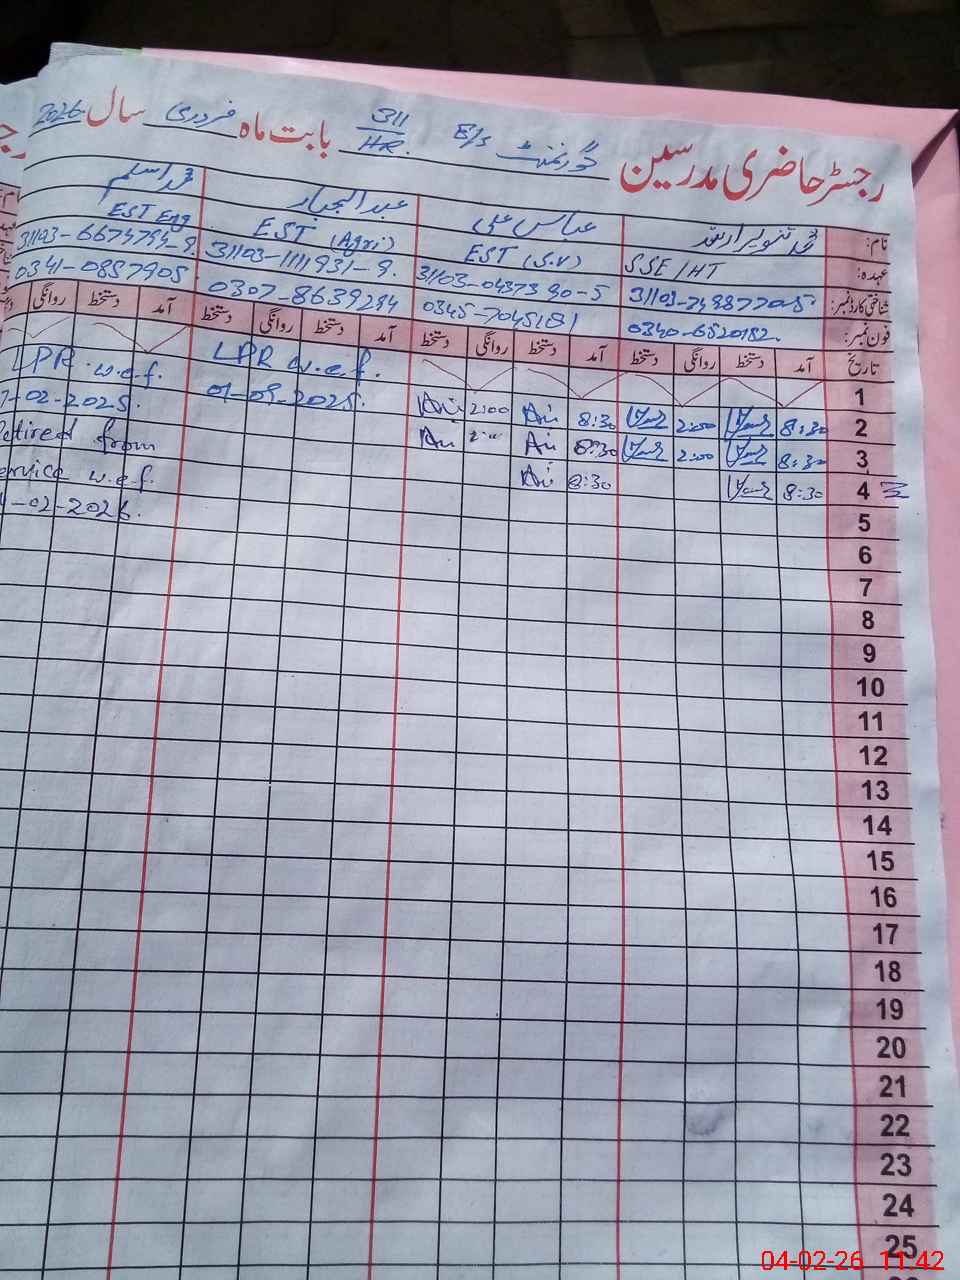 رجسٹر حاضری مدرسین گورنمنٹ E/S 311/HR بابت ماہ فروری سال 2026
نام: محمد تنویر ارشد عباس علی عبدالجبار محمد اسلم
عہدہ: SSE/HT EST (S.V) EST (Agri) EST Eng
شناختی کارڈ نمبر: 31103-0437390-5 31103-1111931-9. 31103-6674794-9.
فون نمبر: 0340-6520182. 0345-7045181 0307-8639284 0341-0857905
تاریخ آمد دستخط روانگی دستخط آمد دستخط روانگی دستخط آمد دستخط روانگی دستخط آمد دستخط روانگی
1 LPR w.e.f. LPR w.e.f.
2 8:30 2:00 8:30 2:00 01-09-2025. -02-2025.
3 8:30 2:00 8:30 2:00 Retired from
4 8:30 8:30 service w.e.f.
5 -02-2026.
6
7
8
9
10
11
12
13
14
15
16
17
18
19
20
21
22
23
24
25
04-02-26 11:42